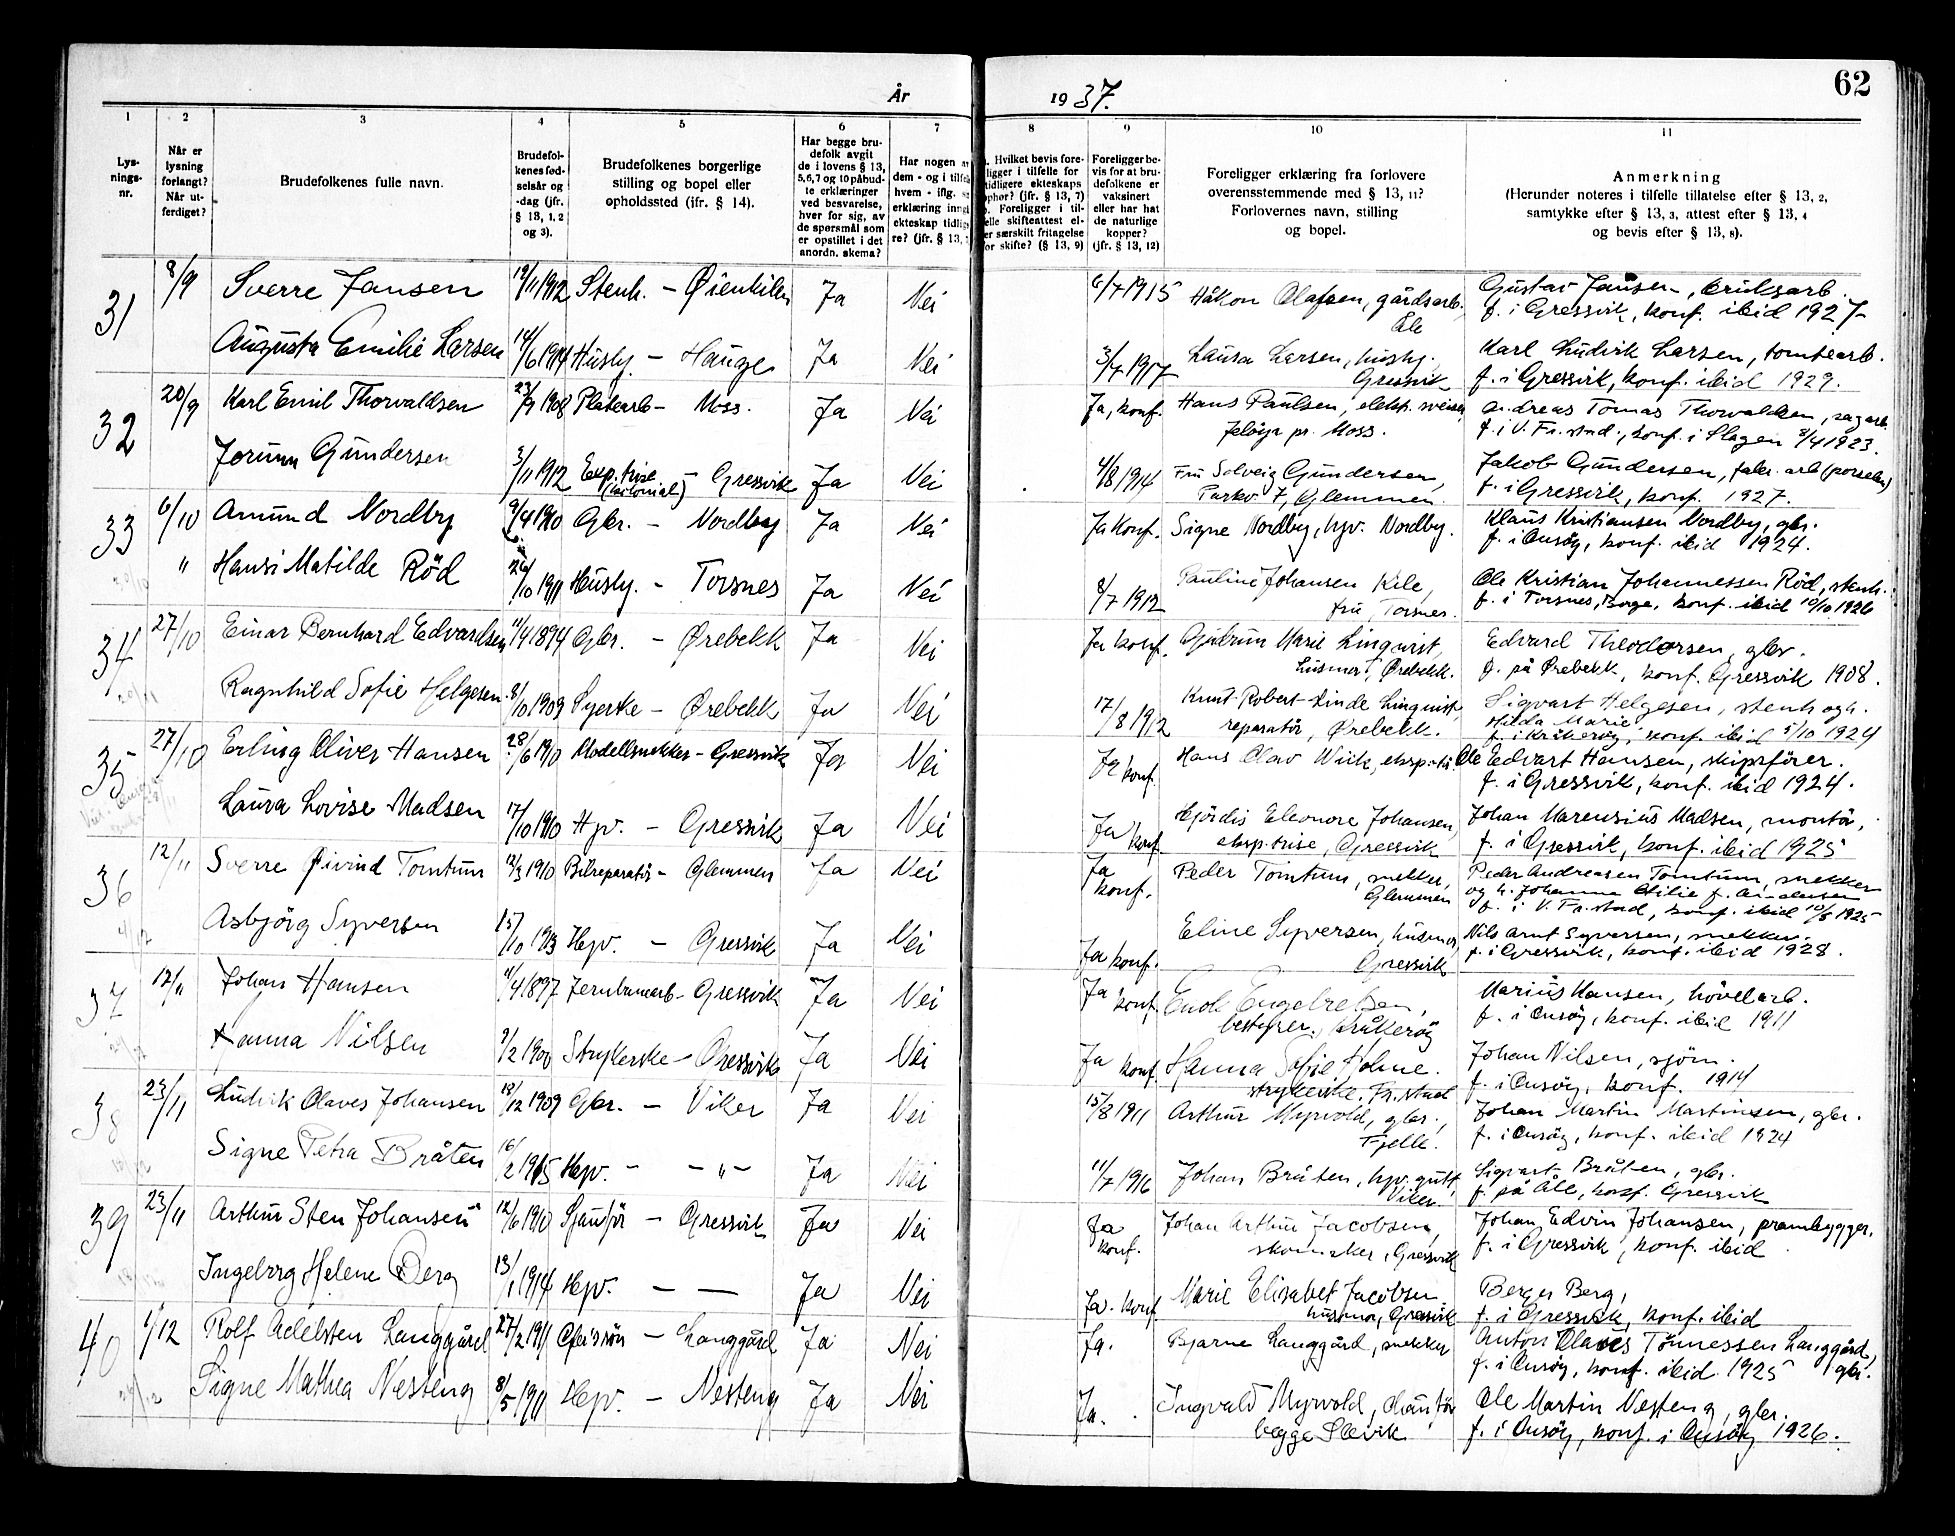 62
År 1937.
1 2 3 4 5 6 7 8 9 10 11
Lys-
nings-
nr.
Når er
lysning
forlangt?
Når ut-
ferdiget?
Brudefolkenes fulle navn.
Brudefol-
kenes fød-
selsår og
-dag (jfr.
§ 13, 1, 2
og 3).
Brudefolkenes borgerlige
stilling og bopel eller
opholdssted (ifr. § 14).
Har begge bru-
defolk avgit
de i lovens § 13,
5,6,7 og 10 påbud-
te erklæringer
ved besvarelse,
hver for sig, av
de spørsmål som
er opstillet i det
anordn. skema?
Har nogen av
dem - og i tilfelle
hvem - iflg.
erklæring inngått
ekteskap tidlige-
re? (jfr. § 13,
. Hvilket bevis fore-
ligger i tilfelle for
tidligere ekteskaps
ophør? (jfr. § 13, 7)
. Foreligger i til-
felle skifteattest el-
er særskilt fritagelse
for skifte? (§ 13, 9)
Foreligger be-
vis for at bru-
defolkene er
vaksinert
eller har hat
de naturlige
kopper?
(jfr. § 13, 12)
Foreligger erklæring fra forlovere
overensstemmende med § 13, 11?
Forlovernes navn, stilling
og bopel.
Anmerkning
(Herunder noteres i tilfelle tillatelse efter § 13, 2,
samtykke efter § 13, 3, attest efter § 13, 4
og bevis efter § 13, 8).
31 8/9 Sverre Jansen 19/11 1912 Stenh. – Øienkilen Ja Nei 6/7 1915 Håkon Olafsen, gårdsarb. Åle Gustav Jansen, bruksarb.
f. i Gressvik, konf. ibid 1927
Augusta Emilie Larsen 14/6 1914 Husby. – Hauge Ja Nei 3/7 1917 Laura Larsen, husby. Gressvik Karl Ludvik Larsen, tomtearb.
f. i Gressvik, konf. ibid 1929.
32 20/9 Karl Emil Thorvaldsen 23/9 1908 Platearb – Moss. Ja Nei Ja, konf. Hans Paulsen, elektr. sveiser, Jeløya pr. Moss. Andreas Tomas Thorvaldsen, sagarb.
f. i V. Fr.stad., konf. i Slagen 8/4 1923.
Jorunn Gundersen 3/11 1912 Exp.trise (kolonial) – Gressvik Ja Nei 4/8 1914 Fru Solveig Gundersen, Parkv 7, Glemmen. Jakob Gundersen, fabr. arb (porselen)
f. i Gressvik, konf. 1927.
33 6/10 Amund Nordby 9/4 1910 Gbr. – Nordby Ja Nei Ja konf. Signe Nordby, hjv. Nordby. Klaus Kristiansen Nordby, gbr.
f. i Onsøy, konf. ibid 1924.
" Hansi Matilde Röd 26/10 1911 Husby. – Torsnes Ja Nei 8/7 1912 Pauline Johansen Kile, fru Torsnes. Ole Kristian Johannessen Röd, stenh.
f. i Torsnes, Borge, konf. ibid 10/10 1926
34 27/10 Einar Bernhard Edvardsen 11/4 1894 Gbr. – Ørebekk Ja Nei Ja konf. Gudrun Marie Linqvist, husmor, Ørebekk. Edvard Theodorsen, gbr.
f. på Ørebekk, konf. Gressvik 1908.
Ragnhild Sofie Helgesen 8/10 1909 Syerske – Ørebekk Ja Nei 17/8 1912 Knut Robert Linde Linqvist, reparatör, Ørebekk. Sigvart Helgesen, stenhogh.
Hilda Marie
f. i Kråkeröy, konf. ibid 5/10 1924
35 27/10 Erling Oliver Hansen 28/6 1910 Modellsnekker – Gressvik Ja Nei Ja konf. Hans Olav Wiik, eksp. Ole Edvart Hansen, skipsförer.
f. i Gressvik, konf. ibid 1924.
Laura Lovise Madsen 17/10 1910 Hjv. – Gressvik Ja Nei Ja konf. Hjördis Eleonore Johansen, eksp.trise, Gressvik Johan Marensius Madsen, montör,
f. i Gressvik, konf. ibid 1925
36 12/11 Sverre Øivind Tomtum 12/3 1910 Bilreparatör – Glemmen Ja Nei Ja konf. Peder Tomtum, snekker, Glemmen Peder Andreasen Tomtum, snekker
og h. Johanne
f. i V. Fr.stad, konf. ibid 10/5 1925
4/12 Asbjörg Syversen 15/10 1913 Hjv. – Gressvik Ja Nei Ja konf. Eline Syversen, husmor, Gressvik Nils Arnt Syversen, snekker.
f. i Gressvik, konf. ibid 1928.
37 12/11 Johan Hansen 11/4 1897 Jernbanearb – Gressvik Ja Nei Ja konf. Enok Engebretsen, bestyrer. Kråkeröy Marius Hansen, hövelarb.
f. i Onsöy, konf. ibid 1911
Hanna Nilsen 9/2 1900 Strykerske – Gressvik Ja Nei Ja konf. Hanna Sofie Holme. strykerske, Fr.stad Johan Nilsen, sjöm.
f. i Onsöy, konf. 1914
38 23/11 Ludvik Olaves Johansen 18/12 1909 Gbr. – Viker Ja Nei 15/8 1911 Arthur Myrvold, gbr., Fjelle. Johan Martin Martinsen, gbr.
f. i Onsöy, konf. ibid 1924
Signe Petra Bråten 16/2 1915 Hjv. – – " – Ja Nei 11/7 1916 Johan Bråten, hjv. gutt, Viker Sigvart Bråten, gbr.
f. på Åle, konf. Gressvik
39 23/11 Arthur Sten Johansen 12/6 1910 Sjauför – Gressvik Ja Nei Ja konf. Johan Arthur Jacobsen, skomaker, Gressvik Johan Edvin Johansen, prambygger.
f. i Gressvik, konf. ibid
Ingeborg Helene Berg 13/1 1914 Hjv. – — Ja Nei Ja. konf Marie Elisabet Jacobsen husmor, Gressvik Berger Berg,
f. i Gressvik, konf. ibid
40 1/12 Rolf Adelsten Langgård 27/2 1911 – Langgård Ja Nei Ja. Bjarne Langgård, snekker Anton Olaves Tönnessen Langgård, gbr.
f. i Onsöy, konf. ibid. 1925
Signe Mathea Næsteng 8/5 1911 Hjv. – Næsteng Ja Nei Ja. Ingvald Myrvold, chauför begge Slevik Ole Martin Næsteng, gbr.
f. i Onsöy, konf. i Onsöy 1926.